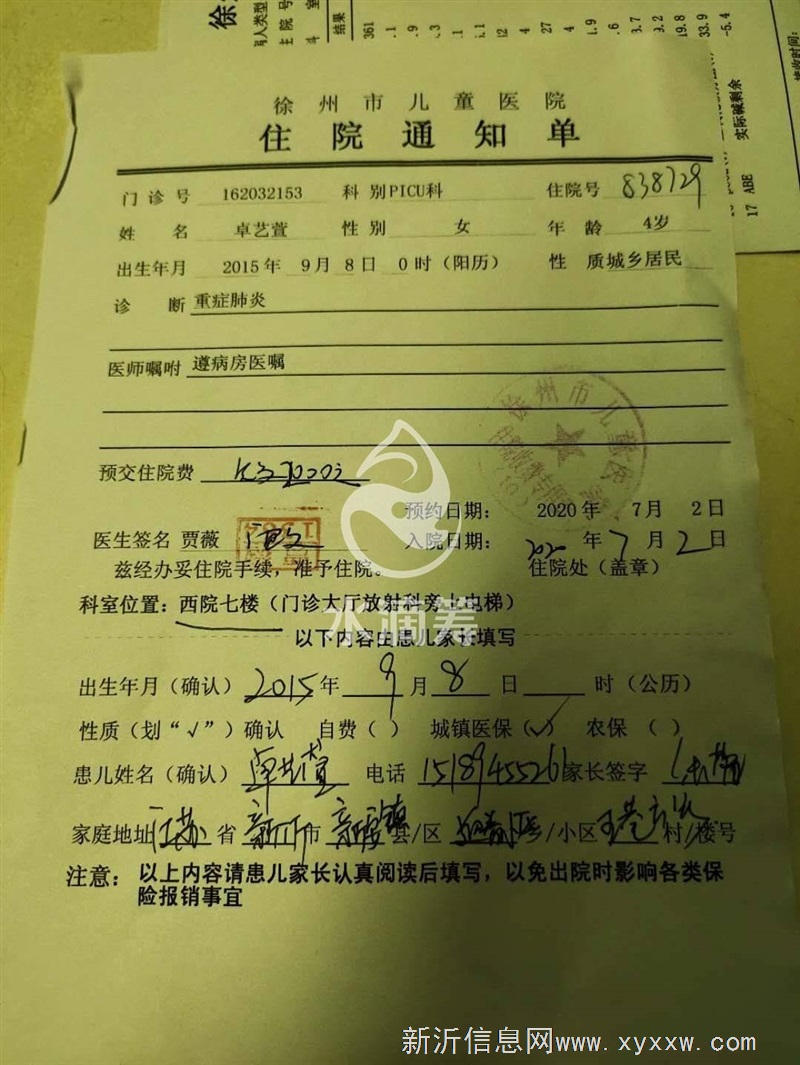 徐州市儿童医院
住院通知单
门诊号 162032153 科别PICU科 住院号 838729
姓名 卓艺萱 性别 女 年龄 4岁
出生年月 2015年 9月 8日 0时(阳历) 性质城乡居民
诊断 重症肺炎
医师嘱咐 遵病房医嘱
预交住院费
预约日期: 2020年 7月 2日
医生签名 贾薇 入院日期: 年7月2日
兹经办妥住院手续,准予住院。 住院处(盖章)
科室位置:西院七楼(门诊大厅放射科旁上电梯)
以下内容由患儿家长填写
出生年月(确认)2015年 9月 8日 时(公历)
性质(划“√”)确认 自费( ) 城镇医保(√) 农保( )
患儿姓名(确认)卓艺萱 电话 15189455261 家长签字
家庭地址 江苏 省 新沂 市 县/区 乡/小区 村/楼号
注意:以上内容请患儿家长认真阅读后填写,以免出院时影响各类保
险报销事宜
水滴筹
新沂信息网www.xyxxw.com